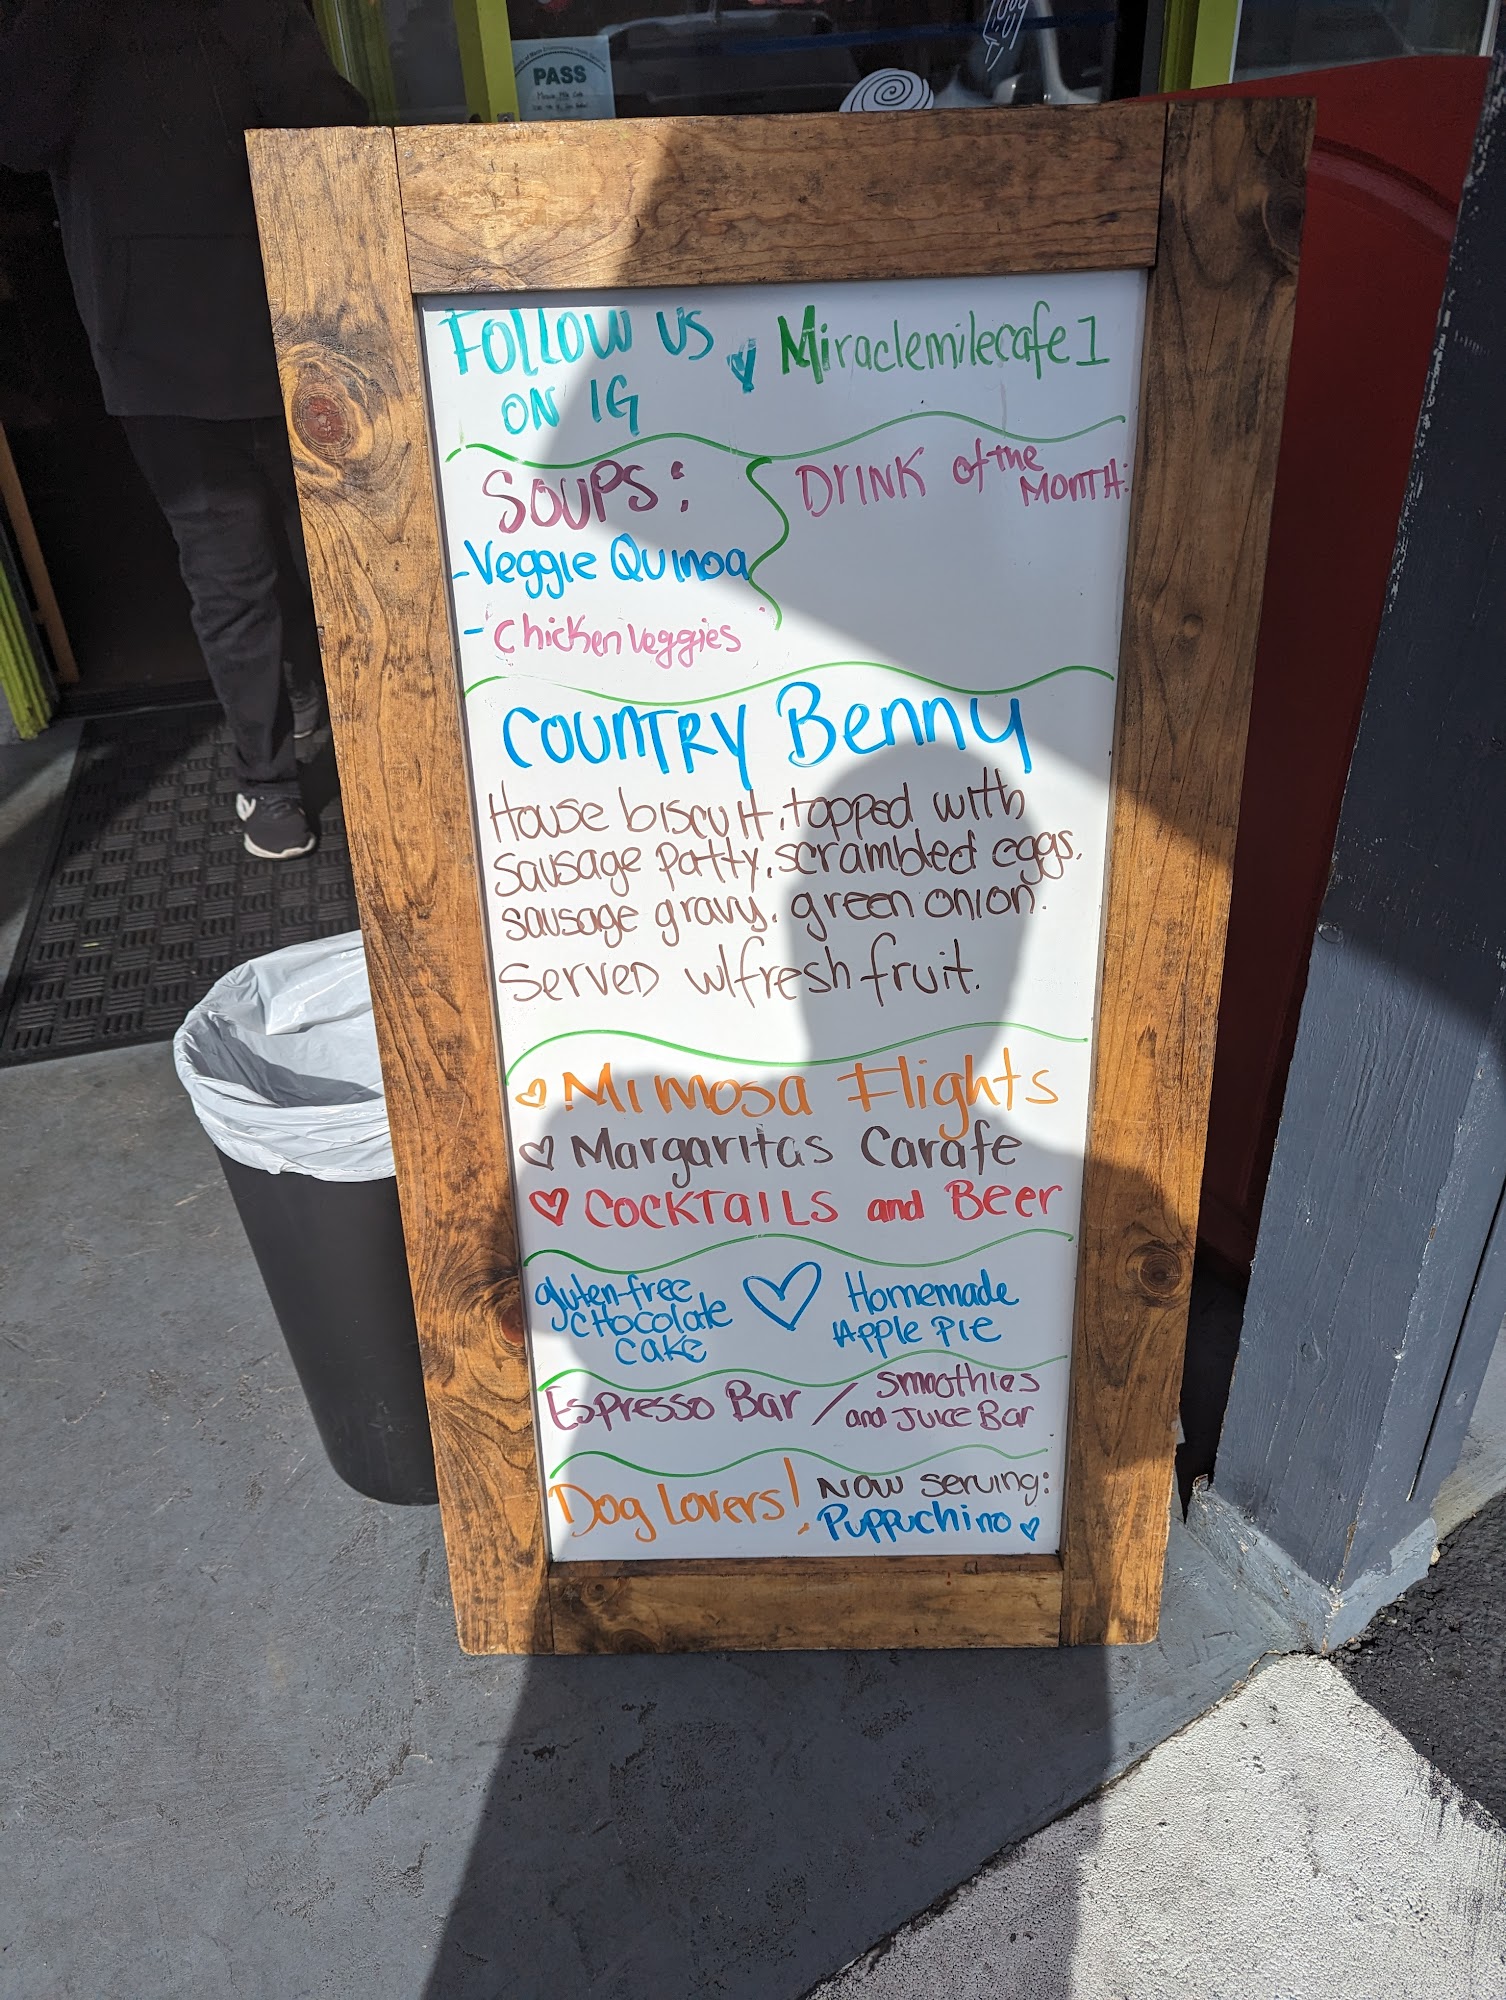 PASS
FOLLOW US
ON IG
Miraclemilecafe1
SOUPS:
-Veggie Quinoa
-Chicken Veggies
DRINK of the
MONTH:
COUNTRY Benny
House biscuit, topped with
sausage patty, scrambled eggs,
sausage gravy, green onion.
Served w/fresh fruit.
Mimosa Flights
Margaritas Carafe
COCKTAILS and Beer
gluten-free
CHocolate
cake
Homemade
Apple Pie
Espresso Bar / smoothies
and Juice Bar
Dog Lovers! Now serving:
Puppuchino